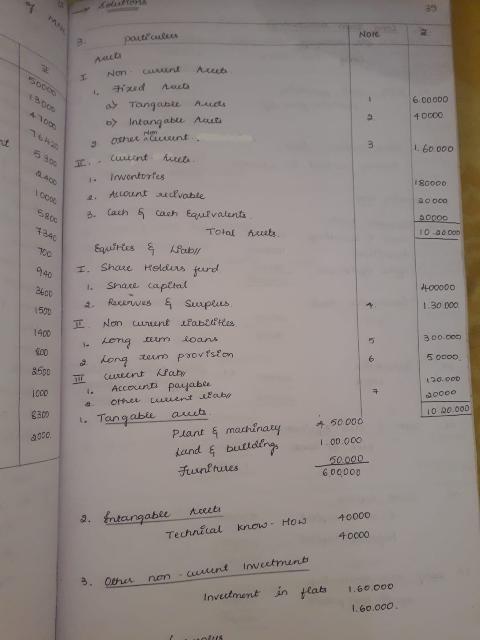 of
₹
50000
13000
47000
76420
5300
2400
10000
5800
7340
700
940
3600
1500
1400
800
3500
1000
8300
2000.
→ Solutions
39
3. particulars Note ₹
Assets
I Non-current Assets.
1. Fixed Assets
a) Tangable Assets 1 6.00000
b) Intangable Assets 2 40000.
2. Other Non current. 3 1.60.000
II. Current Assets.
1. Inventories 180000
2. Account recivable 20000
3. Cash & Cash Equivalents. 20000
Total Assets. 10 20.000
Equities & Liab//
I. Share Holders fund
1. Share capital 400000
2. Reserves & Surplus. 4. 1.30.000
II Non current liabilities
1. Long term loans 5 300.000
2. Long term provision 6 50000.
III Current Liab//
1. Accounts payable 120.000
2. Other current liab// 7 20000
10 20.000
1. Tangable assets.
Plant & machinary 4.50.000
Land & buildings 1.00.000
Furnitures 50.000
600000
2. Intangable Assets
Technical know-How 40000
40000
3. Other non-current Investment
Investment in flats 1.60.000
1.60.000.